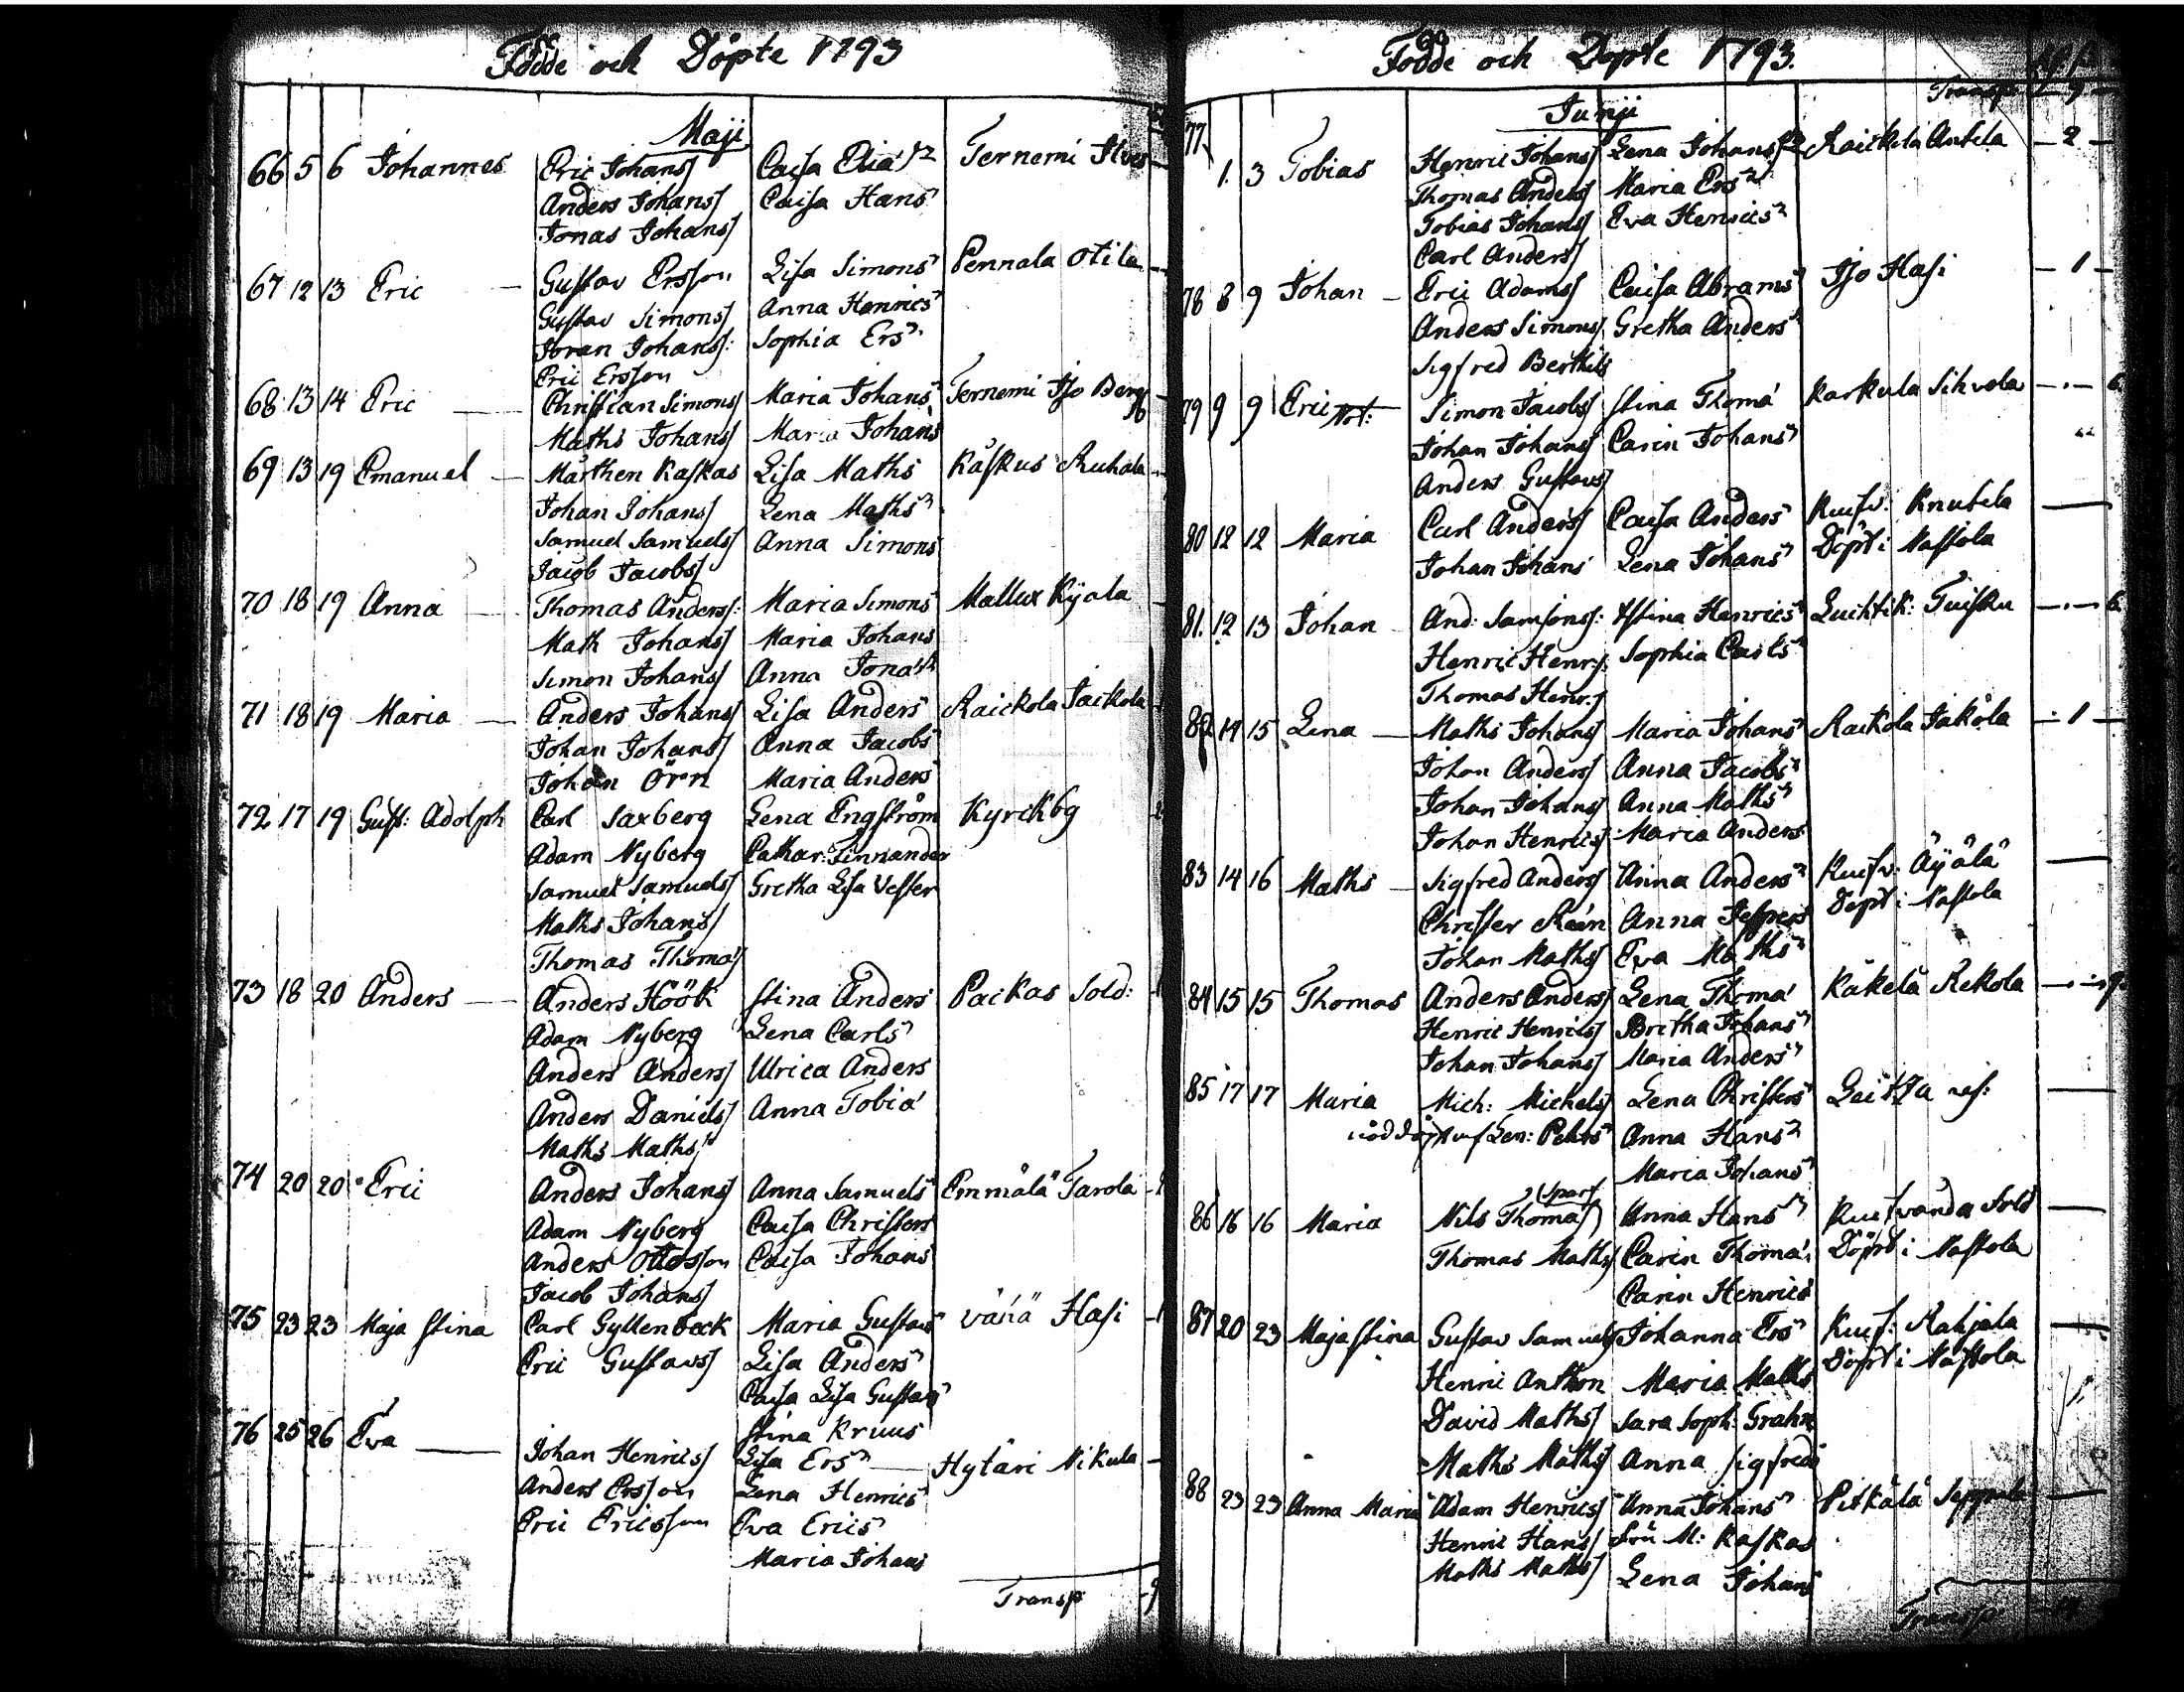 Födde och Döpte 1793
Maji
66 5 6 Johannes Eric Johans/ Caisa Elia Ternemi Ilves
Anders Johans/ Caisa Hans
Jonas Johans/
67 12 13 Eric — Gustav Ersson Lisa Simons Pennala Otila
Gustav Simons/ Anna Henrics
Joran Johans/: Sophia Ers
Eric Ersson
68 13 14 Eric — Christian Simons/ Maria Johans Ternemi Iso Berg
Maths Johans/ Maria Johans
69 13 19 Emanuel — Mårthen Kaskas Lisa Maths Kåskus Ruhala
Johan Johans/ Lena Maths
Samuel Samuels/ Anna Simons
Jacob Jacobs/
70 18 19 Anna — Thomas Anders/: Maria Simons Mallux Kÿala
Math Johans/ Maria Johans
Simon Johans/ Anna Jona
71 18 19 Maria — Anders Johans/ Lisa Anders Raickola Jaickola
Johan Johans/ Anna Jacobs
Johan Örn Maria Anders
72 17 19 Gust: Adolph Carl Saxberg Lena Engström Kyrckbg
Adam Nyberg Cathar: Tinnander
Samuel Samuels/ Gretha Lisa Vester
Maths Johans/
Thomas Thomas/
73 18 20 Anders — Anders Höök Stina Anders Paikas Sold:
Adam Nyberg Lena Carls
Anders Anders/ Ulrica Anders
Anders Daniels/ Anna Tobia
Maths Maths/
74 20 20 Eric Anders Johans/ Anna Samuels Emmälä Tarola
Adam Nyberg Caisa Christers
Anders Ottosson Caisa Johans
Jacob Johans/
75 23 23 Maja Stina Carl Gyllenböck Maria Gustavs Vähä Hasi
Eric Gustavs/ Lisa Anders
Caisa Lisa Gustavs
Stina Kruus
76 25 26 Eva — Johan Henrics/ Lisa Ers — Hytäri Nikula
Anders Ersson Lena Henrics
Eric Ericsson Eva Erics
Maria Johans
Transp: 9
Födde och Döpte 1793.
Transp: 9
Junji
77 1. 3 Tobias Henric Johans/ Lena Johans Raickola Anttila — 2 —
Thomas Anders/ Maria Ers
Tobias Johans/ Eva Henrics
Carl Anders/
78 8 9 Johan — Eric Adams/ Caisa Abrams Iso Hasi — 1 —
Anders Simons/ Gretha Anders
Sigfred Berthils
79 9 9 Eric Simon Jacobs/ Stina Thoma Karkula Sihvola — 6
Johan Johans/ Carin Johans
Anders Gustavs/
80 12 12 Maria Carl Anders/ Caisa Anders Kusv: Knutila —
Johan Johans Lena Johans Döpt i Nastola
81. 12 13 Johan And: Samsons/: Stina Henrics Luchtik: Tuisku — 6
Henric Henr:/: Sophia Carls
Thomas Henr:/
82 14 15 Lena — Maths Johans/ Maria Johans Raikola Jakola — 1 —
Johan Anders/ Anna Jacobs
Johan Johans/ Anna Maths
Johan Henrics/ Maria Anders
83 14 16 Maths — Sigfred Anders/ Anna Anders Kusv: Äÿälä —
Christer Anna Jespers Döpt i Nastola
Johan Maths/ Eva Maths
84 15 15 Thomas Anders Anders/ Lena Thoma Käkelä Rekola — 9
Henric Henrics/ Britha Johans
Johan Johans/ Maria Anders
85 17 17 Maria Mich: Michels/ Lena Christers —
Lena Pehrs Anna Hans
Maria Johans
86 16 16 Maria Nils Thomas/ Anna Hans Kusvanda Sold —
Thomas Maths/ Carin Thoma Döpt i Nastola
Carin Henrics
87 20 23 Maja Stina Gustav Samuels/ Johanna Ers Kusv: Rahjala —
Henric Anthon Maria Maths Döpt i Nastola
David Maths/ Sara Soph: Grahn
Maths Maths/ Anna Sigfreds
88 23 23 Anna Maria Adam Henrics/ Anna Johans Pitkälä Seppälä —
Henric Hans/ Fru M: Kaskas
Maths Maths/ Lena Johans
Transp: